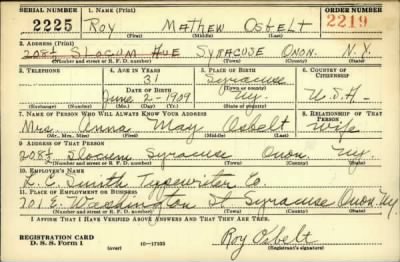 SERIAL NUMBER 1. NAME (Print) ORDER NUMBER
2225 Roy Mathew Osbelt 2219
(First) (Middle) (Last)
2. ADDRESS (Print)
208½ Slocum Ave Syracuse Onon. N.Y.
(Number and street or R. F. D. number) (Town) (County) (State)
3. TELEPHONE 4. AGE IN YEARS 5. PLACE OF BIRTH 6. COUNTRY OF CITIZENSHIP
31 Syracuse
DATE OF BIRTH (Town or county)
June 2-1909 N.Y. U.S.A.
(Exchange) (Number) (Mo.) (Day) (Yr.) (State or country)
7. NAME OF PERSON WHO WILL ALWAYS KNOW YOUR ADDRESS 8. RELATIONSHIP OF THAT PERSON
Mrs. Anna May Osbelt Wife
(Mr., Mrs., Miss) (First) (Middle) (Last)
9. ADDRESS OF THAT PERSON
208½ Slocum Syracuse Onon. N.Y.
(Number and street or R. F. D. number) (Town) (County) (State)
10. EMPLOYER'S NAME
L. C. Smith Typewriter Co.
11. PLACE OF EMPLOYMENT OR BUSINESS
701 E. Washington St Syracuse Onon. N.Y.
(Number and street or R. F. D. number) (Town) (County) (State)
I AFFIRM THAT I HAVE VERIFIED ABOVE ANSWERS AND THAT THEY ARE TRUE.
REGISTRATION CARD
D. S. S. Form 1 (over) 16-17105 Roy Osbelt
(Registrant's signature)